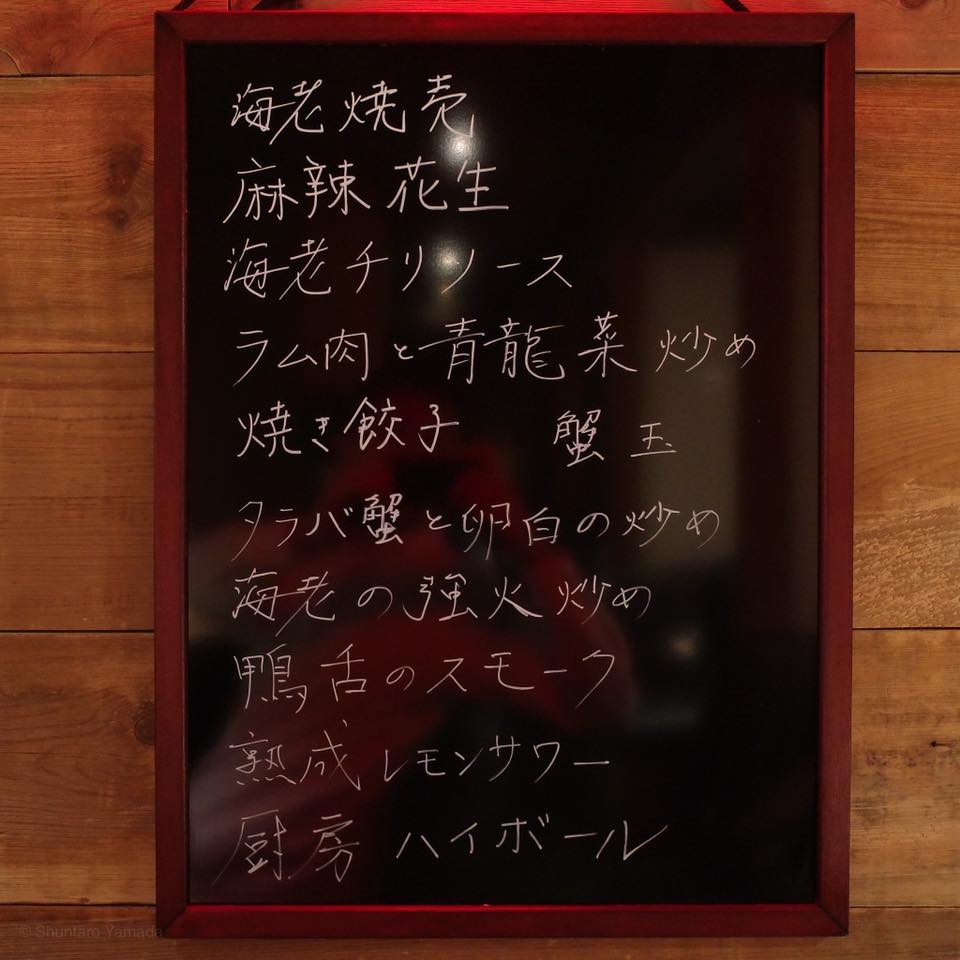 海老焼売
麻辣花生
海老チリソース
ラム肉と青龍菜炒め
焼き餃子 蟹玉
タラバ蟹と卵白の炒め
海老の強火炒め
鴨舌のスモーク
熟成レモンサワー
厨房ハイボール
© Shuntaro Yamada